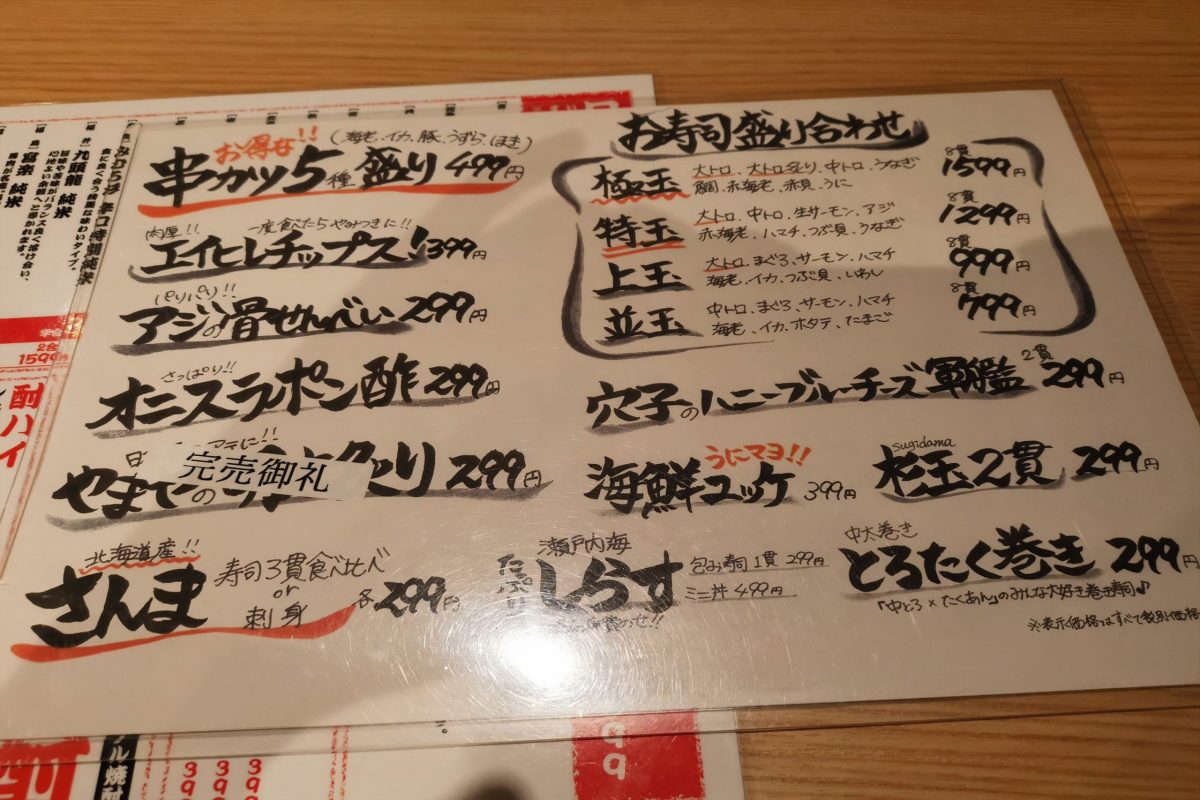 お得な!!
(海老、イカ、豚、うずら、ほき)
串カツ5種盛り 499円
肉厚!!
一度食べたらやみつきに!!
エイヒレチップス! 399円
パリパリ!!
アジの骨せんべい 299円
さっぱり!!
オニスラポン酢 299円
完売御礼
299円
北海道産!!
さんま
寿司3貫食べ比べ
or
刺身
各299円
お寿司盛り合わせ
極玉 大トロ、大トロ炙り、中トロ、うなぎ
鯛、赤海老、赤貝、うに
8貫 1599円
特玉 大トロ、中トロ、生サーモン、アジ
赤海老、ハマチ、つぶ貝、うなぎ
8貫 1299円
上玉 大トロ、まぐろ、サーモン、ハマチ
海老、イカ、つぶ貝、いわし
8貫 999円
並玉 中トロ、まぐろ、サーモン、ハマチ
海老、イカ、ホタテ、たまご
8貫 799円
穴子のハニーブルーチーズ軍艦 2貫 299円
うにマヨ!!
海鮮ユッケ 399円
sugidama
杉玉2貫 299円
瀬戸内海
たっぷり
しらす
包み寿司1貫 299円
ミニ丼 499円
中太巻き
とろたく巻き 299円
「中とろ×たくあん」のみんな大好き巻き寿司♪
※表示価格はすべて税別価格
九頭龍 純米
富楽 純米
2合
1599円
酎ハイ